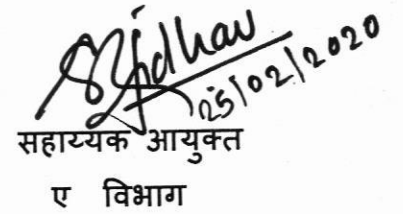 25/02/2020
सहाय्यक आयुक्त
ए विभाग